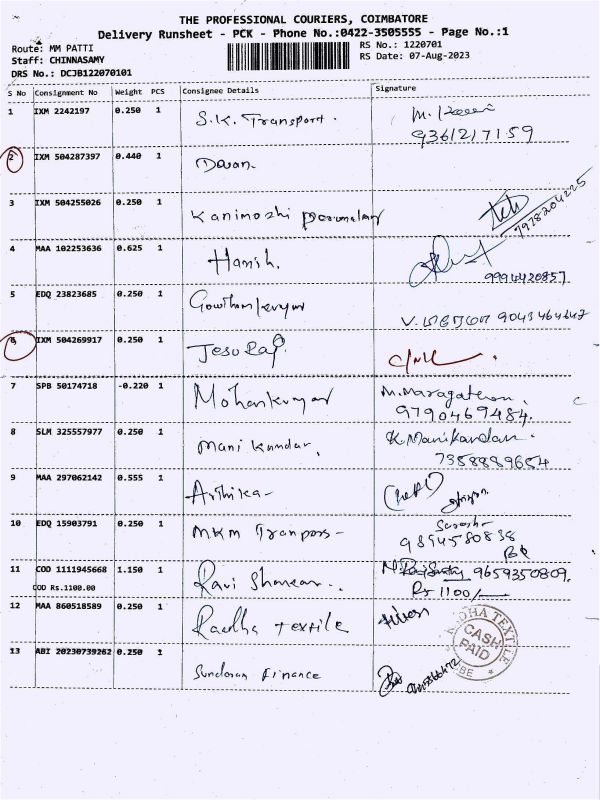 THE PROFESSIONAL COURIERS, COIMBATORE
Delivery Runsheet - PCK - Phone No.:0422-3505555 - Page No.:1
Route: MM PATTI
RS No.: 1220701
Staff: CHINNASAMY
RS Date: 07-Aug-2023
DRS No.: DCJB122070101
S No Consignment No Weight PCS Consignee Details Signature
1 IXM 2242197 0.250 1 S.K. Transport.
9361217159
2 IXM 504287397 0.440 1
3 IXM 504255026 0.250 1 Kanimozhi
7978204225
4 MAA 102253636 0.625 1 Harish.
9994420857
5 EDQ 23823685 0.250 1 Gowthamkumar
6 IXM 504269917 0.250 1 Jesu Raj.
7 SPB 50174718 -0.220 1 Mohankumar
9790469484.
8 SLM 325557977 0.250 1 Mani kandan, K. Manikandan.
7358889654
9 MAA 297062142 0.555 1 Arthika-
10 EDQ 15903791 0.250 1 MKM Tranpors-
9894580838
11 COD 1111945668 1.150 1 Ravi Shankar.. 9659350809.
COD Rs.1100.00
Rs 1100/-
12 MAA 860518589 0.250 1 Radha Textile
RADHA TEXTILE
CASH
PAID
CBE
13 ABI 20230739262 0.250 1 Sundaram Finance